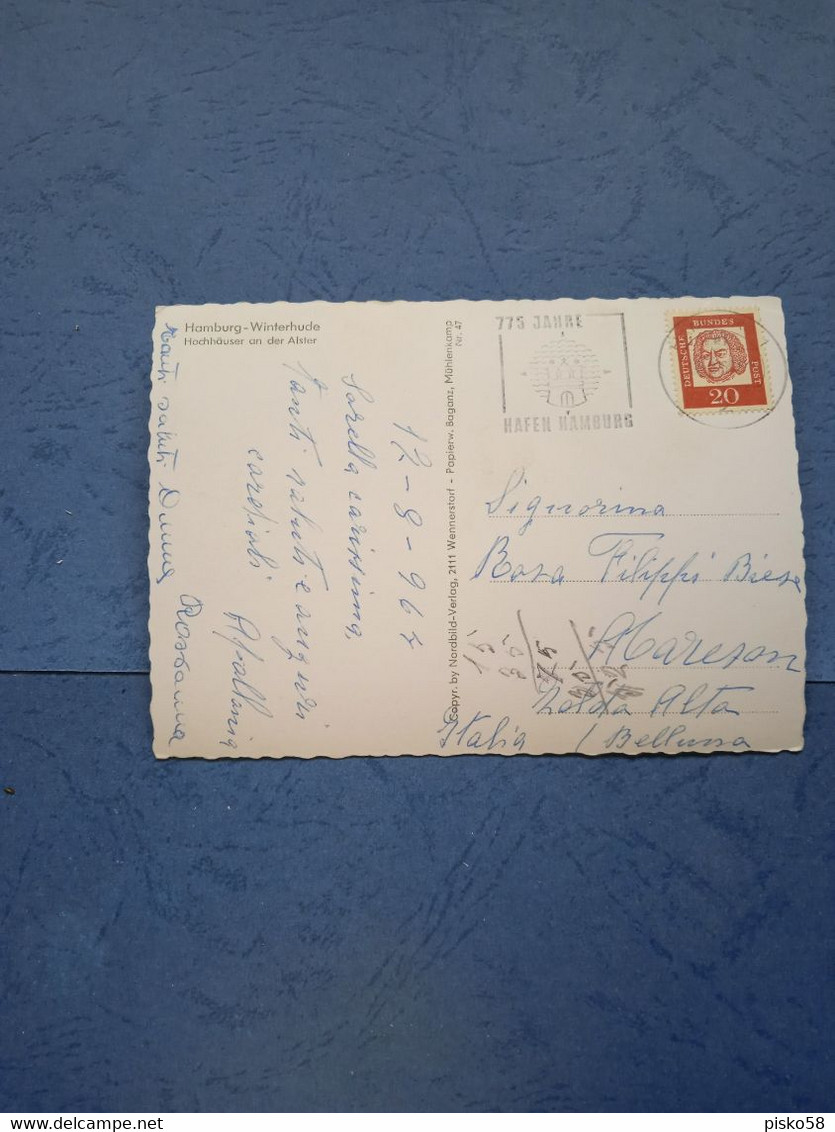 Hamburg-Winterhude
Hochhäuser an der Alster
12-8-967
Sorella carissima,
Tanti saluti e auguri
cordiali
Tanti saluti Dunna Rossanna
Copyr. by Nordbild-Verlag, 2111 Wennerstorf - Papierw. Baganz, Mühlenkamp
Nr. 47
775 JAHRE
HAFEN HAMBURG
DEUTSCHE BUNDES POST
20
Signorina
Rosa Filippi Biesa
Mareson
Zoldo Alto
Italia / Belluno
pisko58